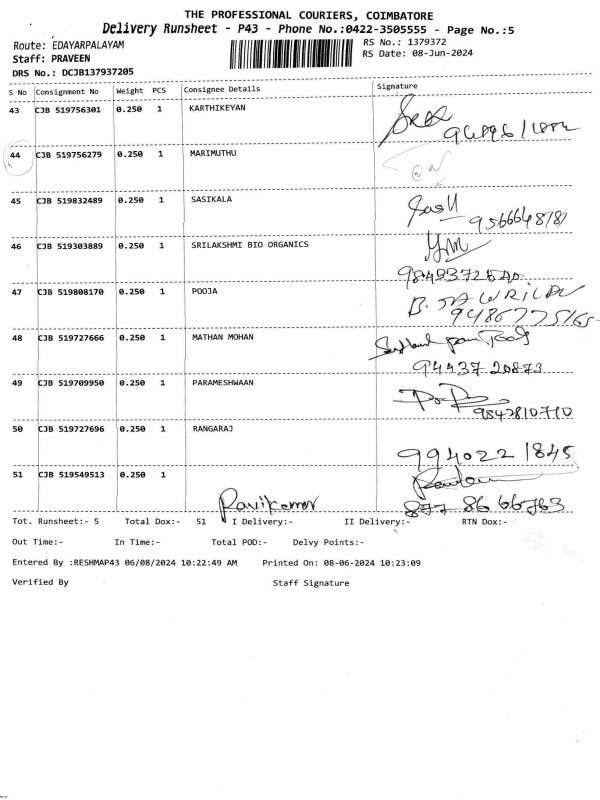 THE PROFESSIONAL COURIERS, COIMBATORE
Delivery Runsheet - P43 - Phone No.:0422-3505555 - Page No.:5
Route: EDAYARPALAYAM
RS No.: 1379372
Staff: PRAVEEN
RS Date: 08-Jun-2024
DRS No.: DCJB137937205
S No Consignment No Weight PCS Consignee Details Signature
43 CJB 519756301 0.250 1 KARTHIKEYAN
44 CJB 519756279 0.250 1 MARIMUTHU
45 CJB 519832489 0.250 1 SASIKALA
46 CJB 519303889 0.250 1 SRILAKSHMI BIO ORGANICS
47 CJB 519808170 0.250 1 POOJA
48 CJB 519727666 0.250 1 MATHAN MOHAN
94437 20873
49 CJB 519709950 0.250 1 PARAMESHWAAN
9842810710
50 CJB 519727696 0.250 1 RANGARAJ
994022 1845
51 CJB 519549513 0.250 1
Ravikumar 877 86 66763
Tot. Runsheet:- 5 Total Dox:- 51 I Delivery:- II Delivery:- RTN Dox:-
Out Time:- In Time:- Total POD:- Delvy Points:-
Entered By :RESHMAP43 06/08/2024 10:22:49 AM Printed On: 08-06-2024 10:23:09
Verified By Staff Signature